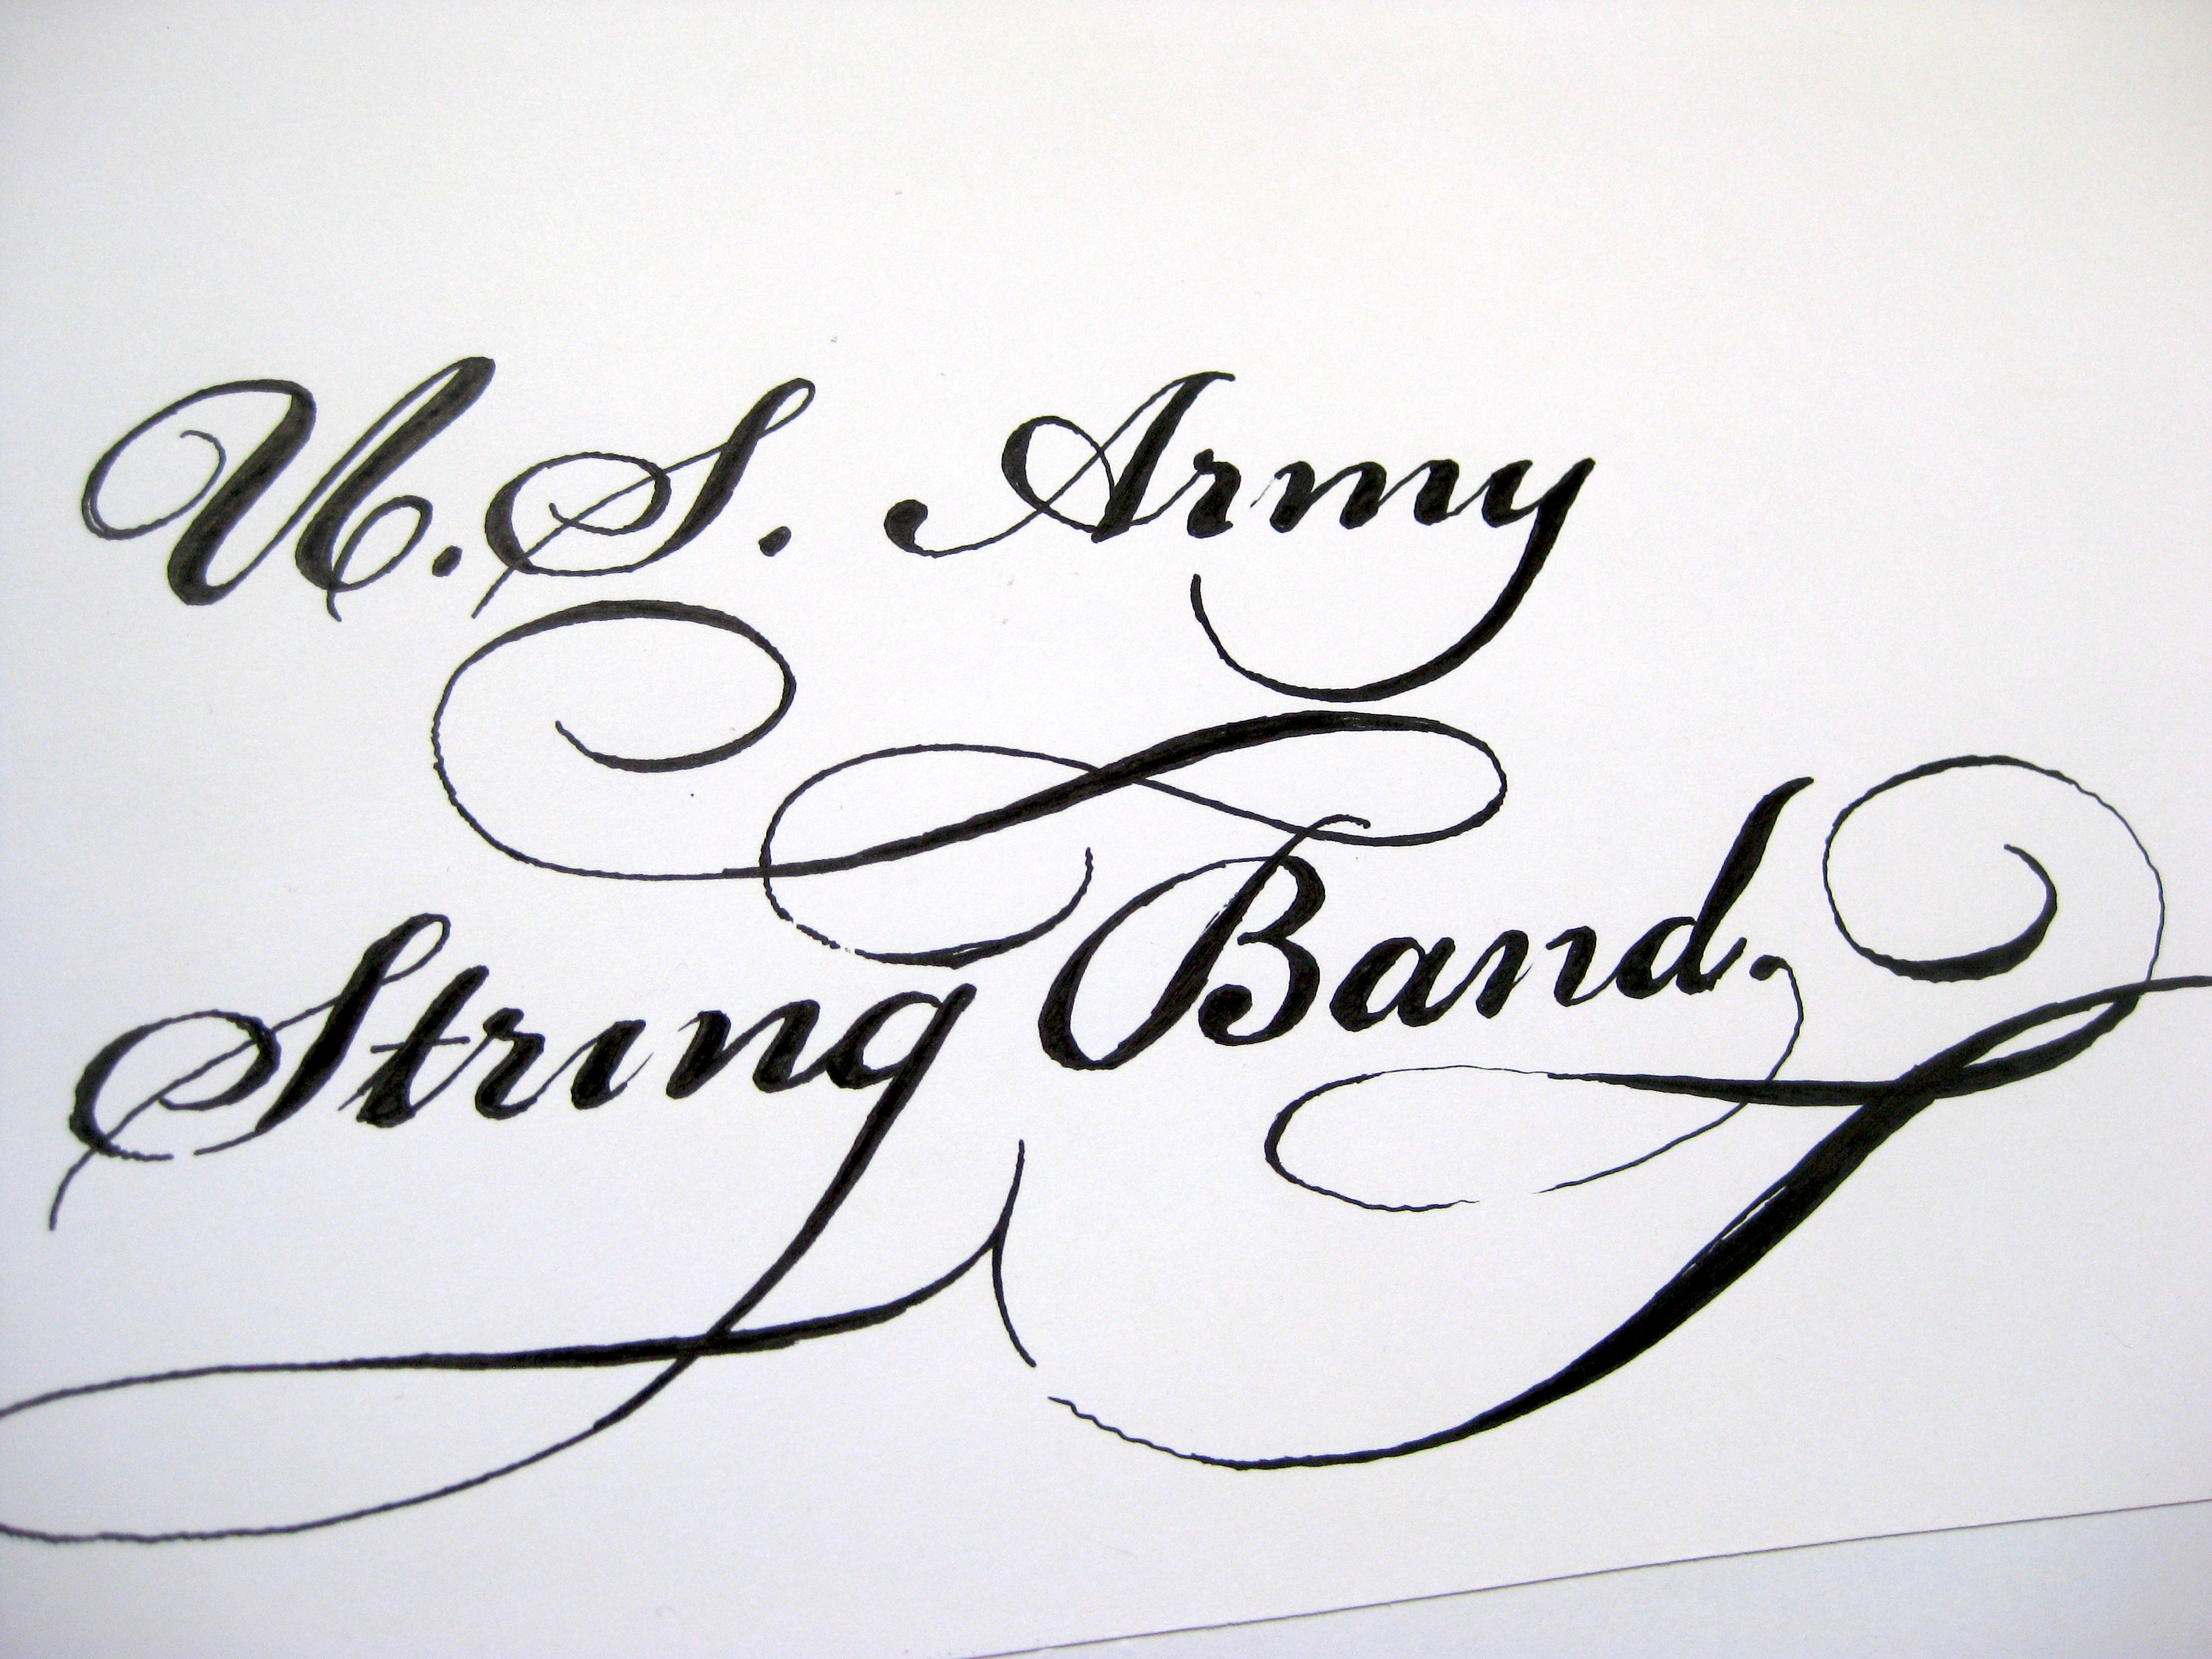 U.S. Army
String Band